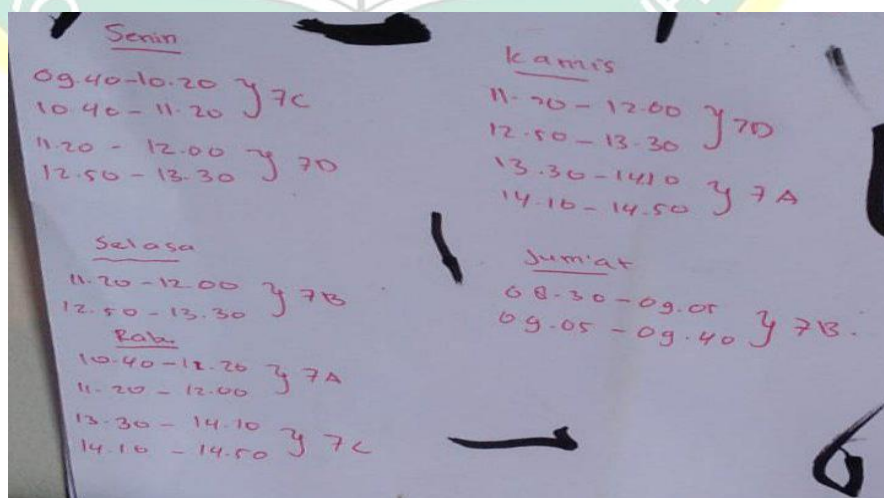 Senin
09.40-10.20
10.40-11.20 } 7C
11.20 - 12.00
12.50 - 13.30 } 7D
Selasa
11.20-12.00
12.50-13.30 } 7B
Rabu
10.40-11.20 } 7A
11.20-12.00
13.30 - 14.10
14.10 - 14.50 } 7C
Kamis
11.20 - 12.00
12.50 - 13.30 } 7D
13.30-14.10
14.10-14.50 } 7A
Jum'at
08.30-09.05
09.05-09.40 } 7B.